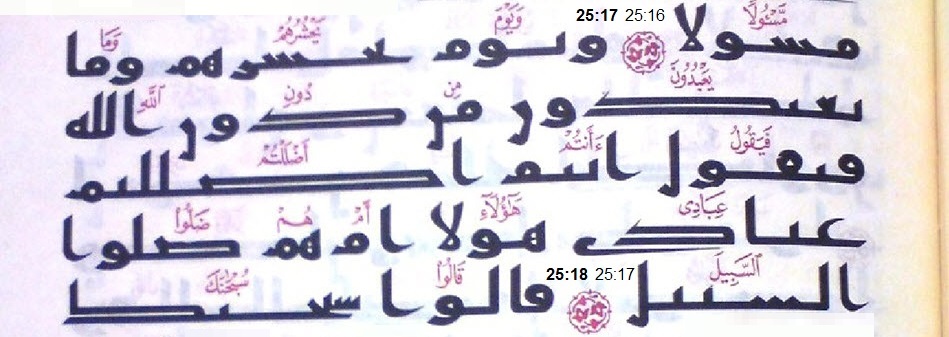 مَّسْـُٔولًا 25:16 25:17 وَيَوْمَ يَحْشُرُهُمْ وَمَا
مسولا ويوم يحشرهم وما
يَعْبُدُونَ مِن دُونِ ٱللَّهِ
يعبدون من دون الله
فَيَقُولُ ءَأَنتُمْ أَضْلَلْتُمْ
فيقول انتم اضللتم
عِبَادِى هَٰٓؤُلَآءِ أَمْ هُمْ ضَلُّوا۟
عبادي هولا ام هم ضلوا
ٱلسَّبِيلَ 25:17 25:18 قَالُوا۟ سُبْحَٰنَكَ
السبيل قالوا سبحنك